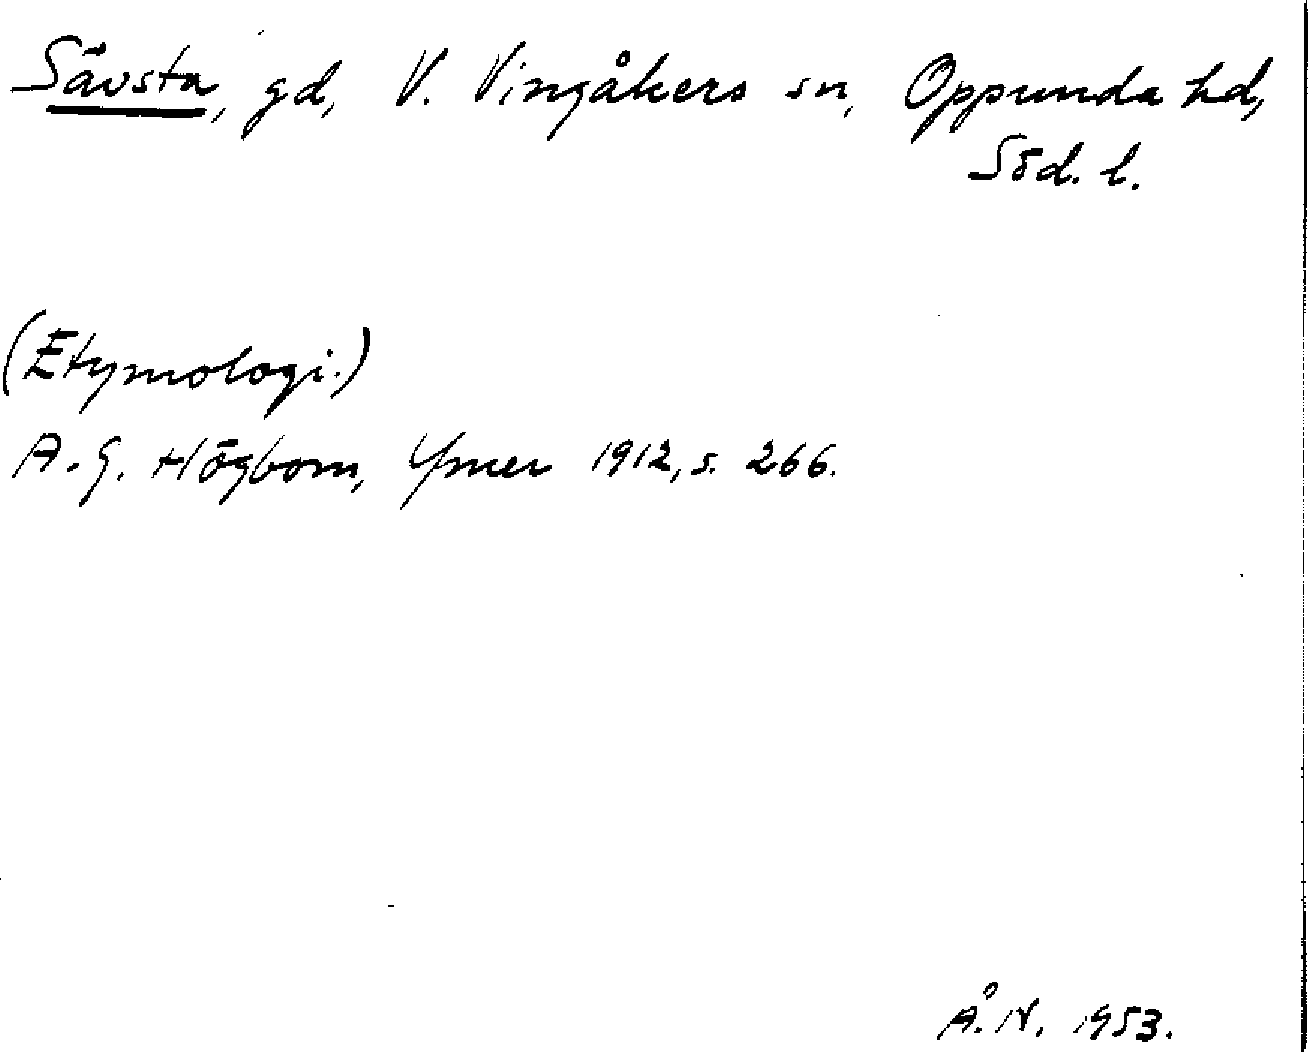 Sävsta, gd, V. Vingåkers sn, Oppunda hd,
Söd. l.
(Etymologi.)
A. G. Högbom, Ymer 1912, s. 266.
Å. N. 1953.